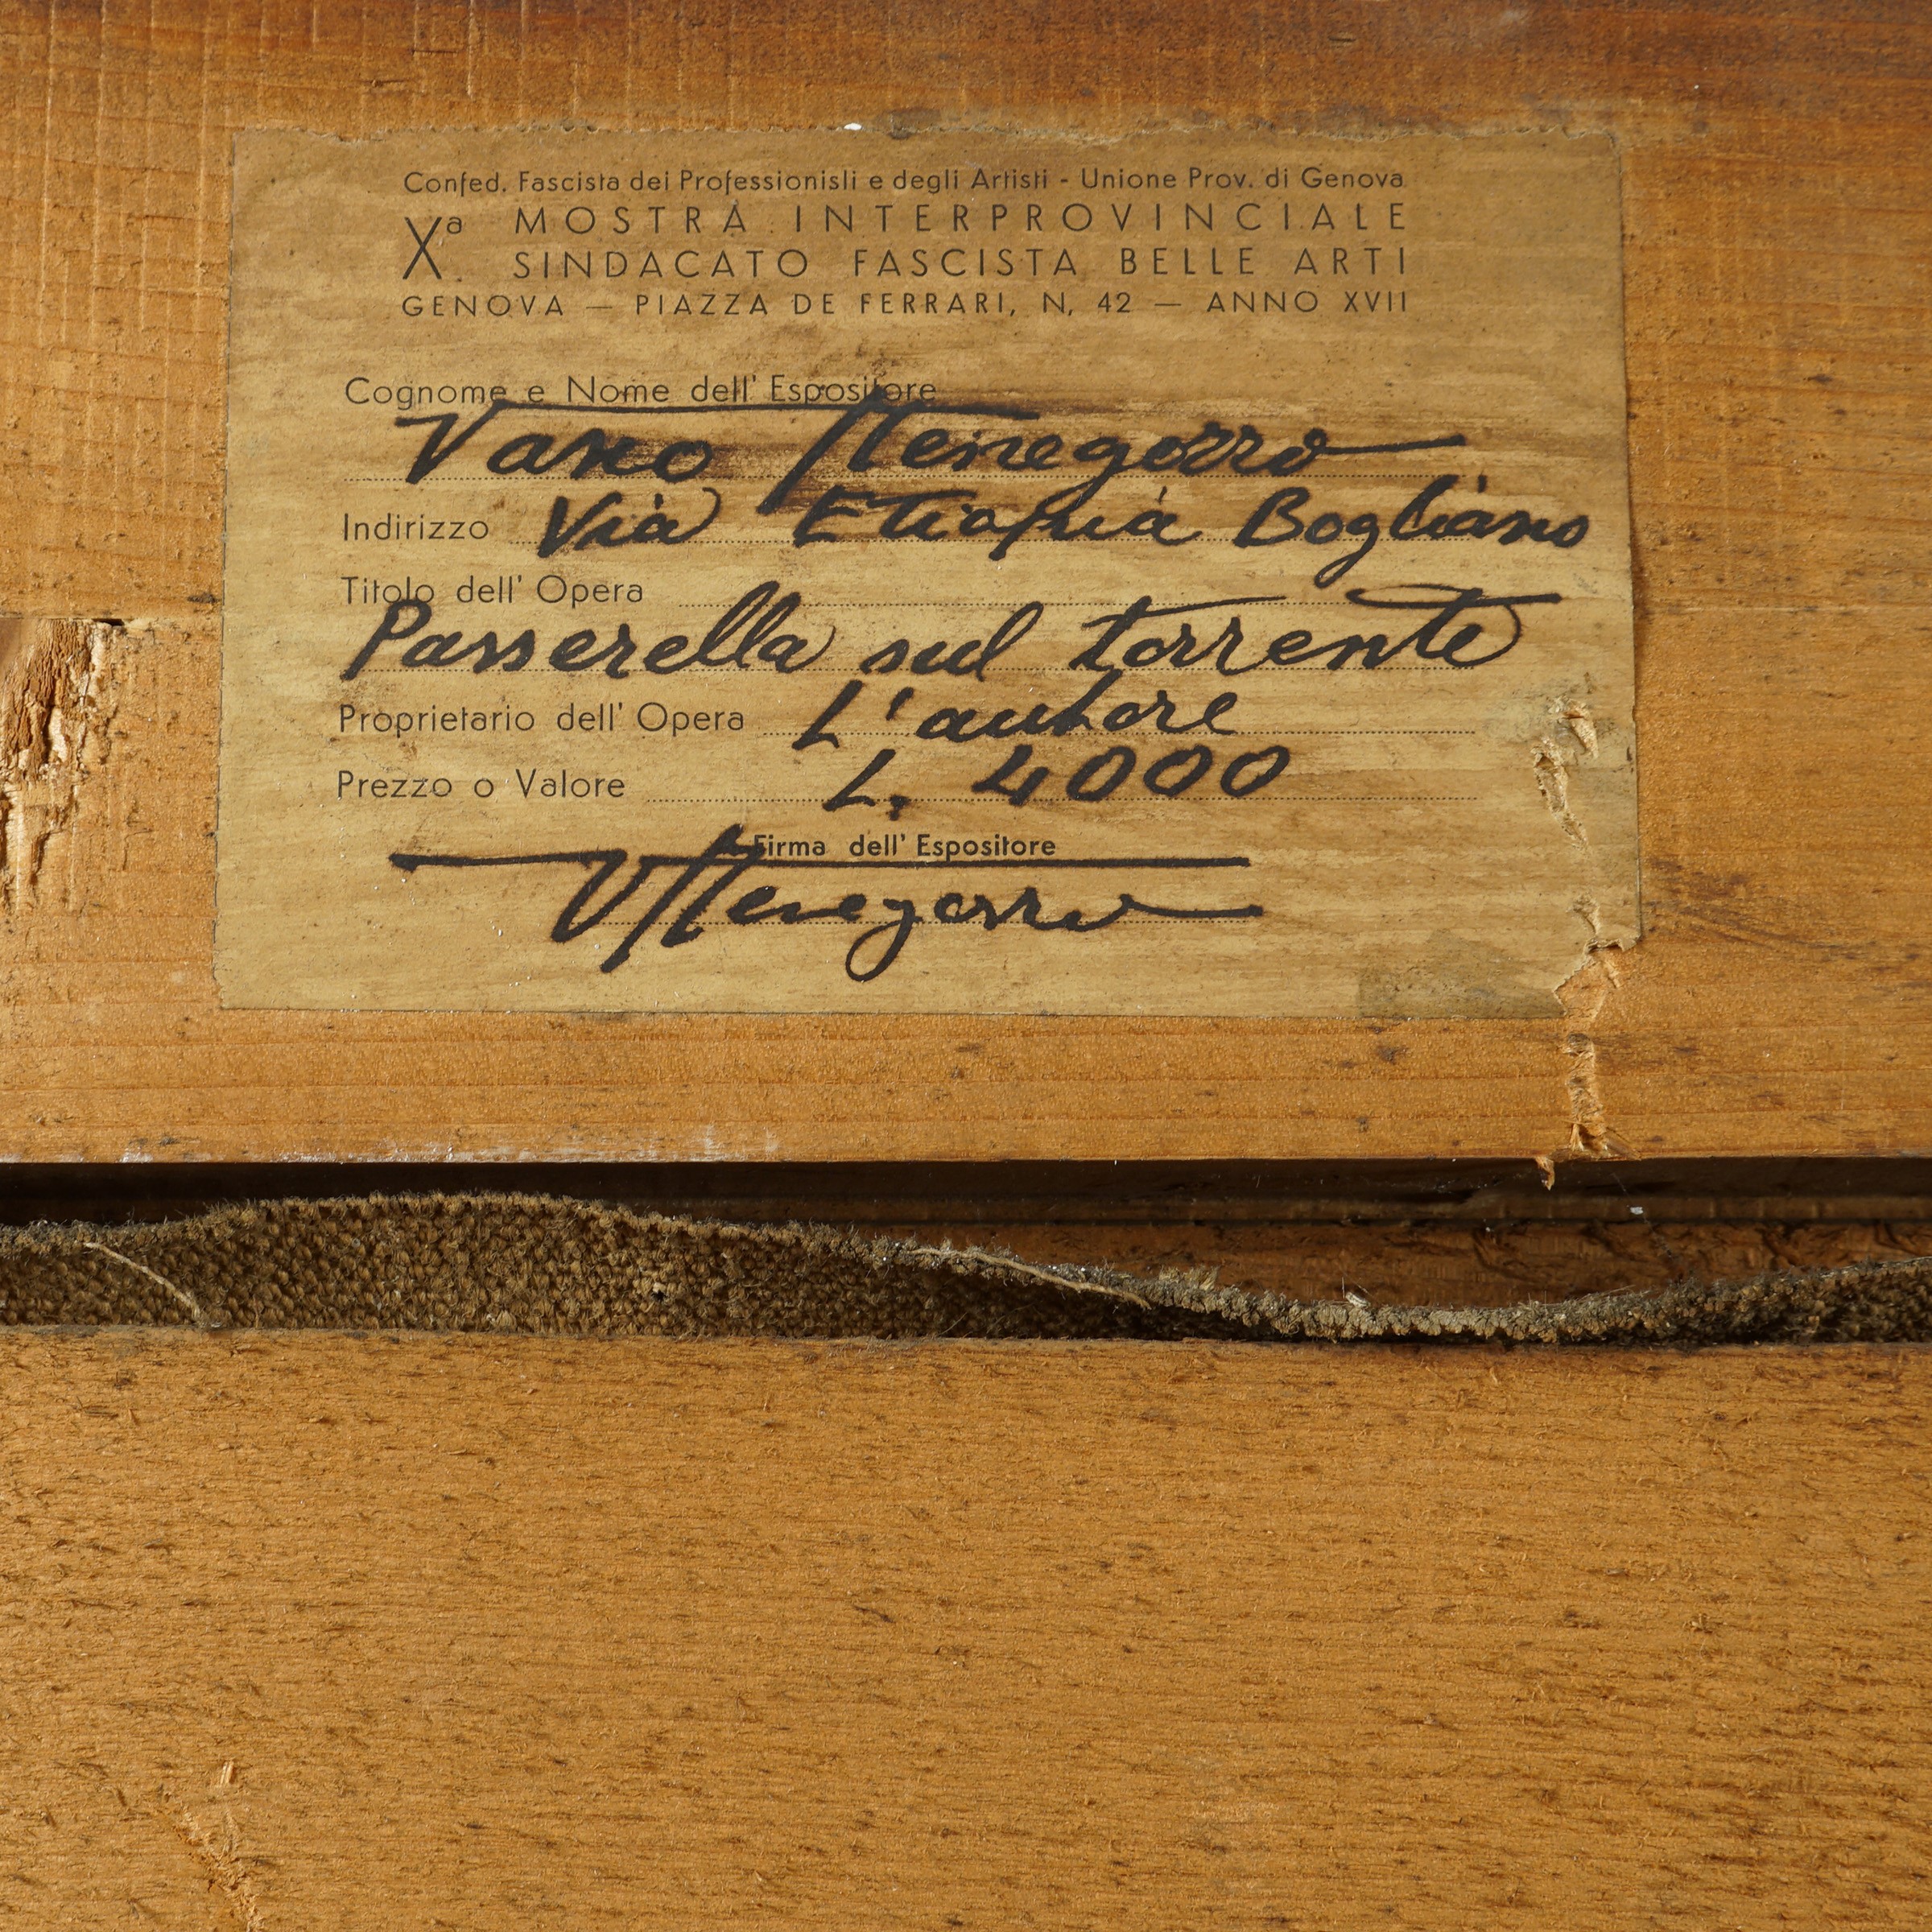 Confed. Fascista dei Professionisti e degli Artisti - Unione Prov. di Genova
Xª MOSTRA INTERPROVINCIALE
SINDACATO FASCISTA BELLE ARTI
GENOVA — PIAZZA DE FERRARI, N. 42 — ANNO XVII
Cognome e Nome dell' Espositore
Indirizzo Via Etiopia Bogliasco
Titolo dell' Opera
Passerella sul torrente
Proprietario dell' Opera L'autore
Prezzo o Valore L. 4000
Firma dell' Espositore